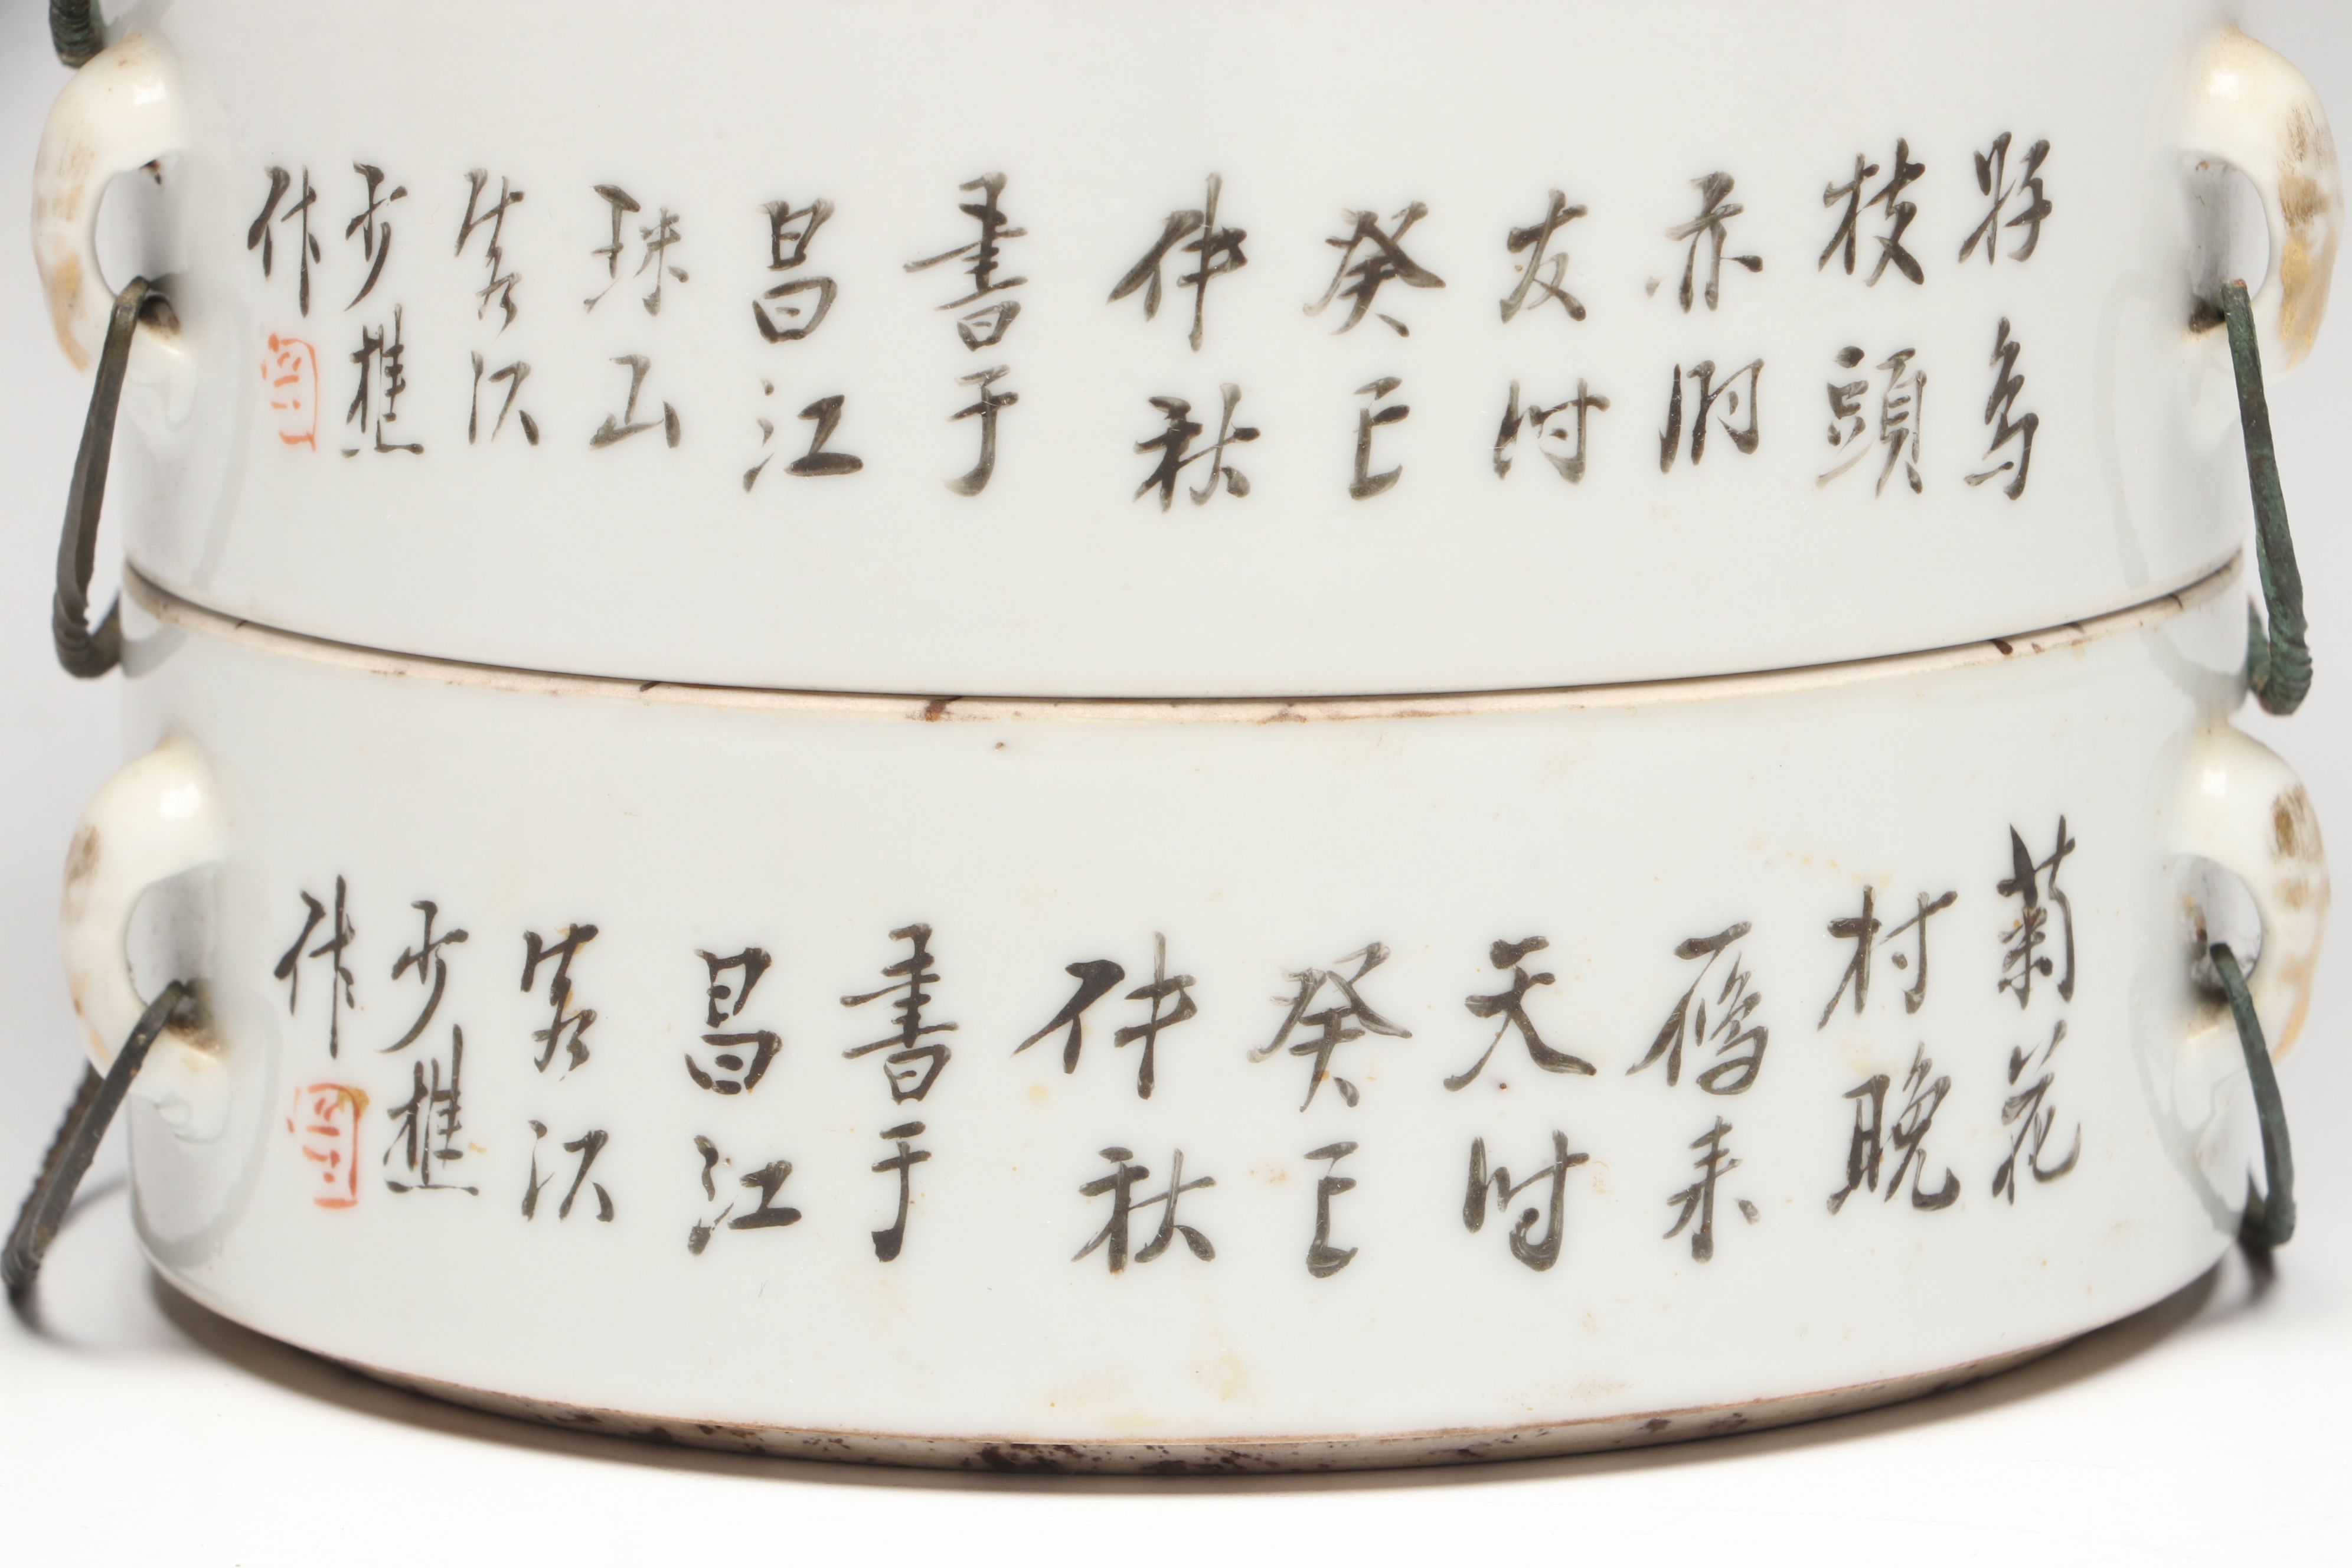 好鳥
枝頭
亦朋
友时
癸巳
仲秋
書于
昌江
珠山
客次
少樵
作
菊花
村晚
雁来
天时
癸巳
仲秋
書于
昌江
客次
少樵
作